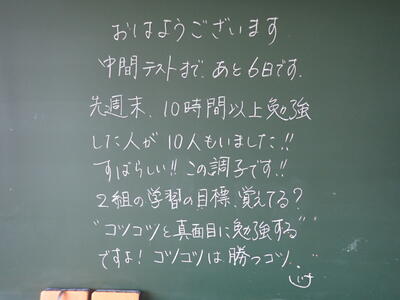 おはようございます
中間テストまで、あと6日です。
先週末、10時間以上勉強
した人が10人もいました!!
すばらしい!!この調子です!!
2組の学習の目標、覚えてる?
"コツコツと真面目に勉強する"
ですよ!コツコツは勝つコツ。